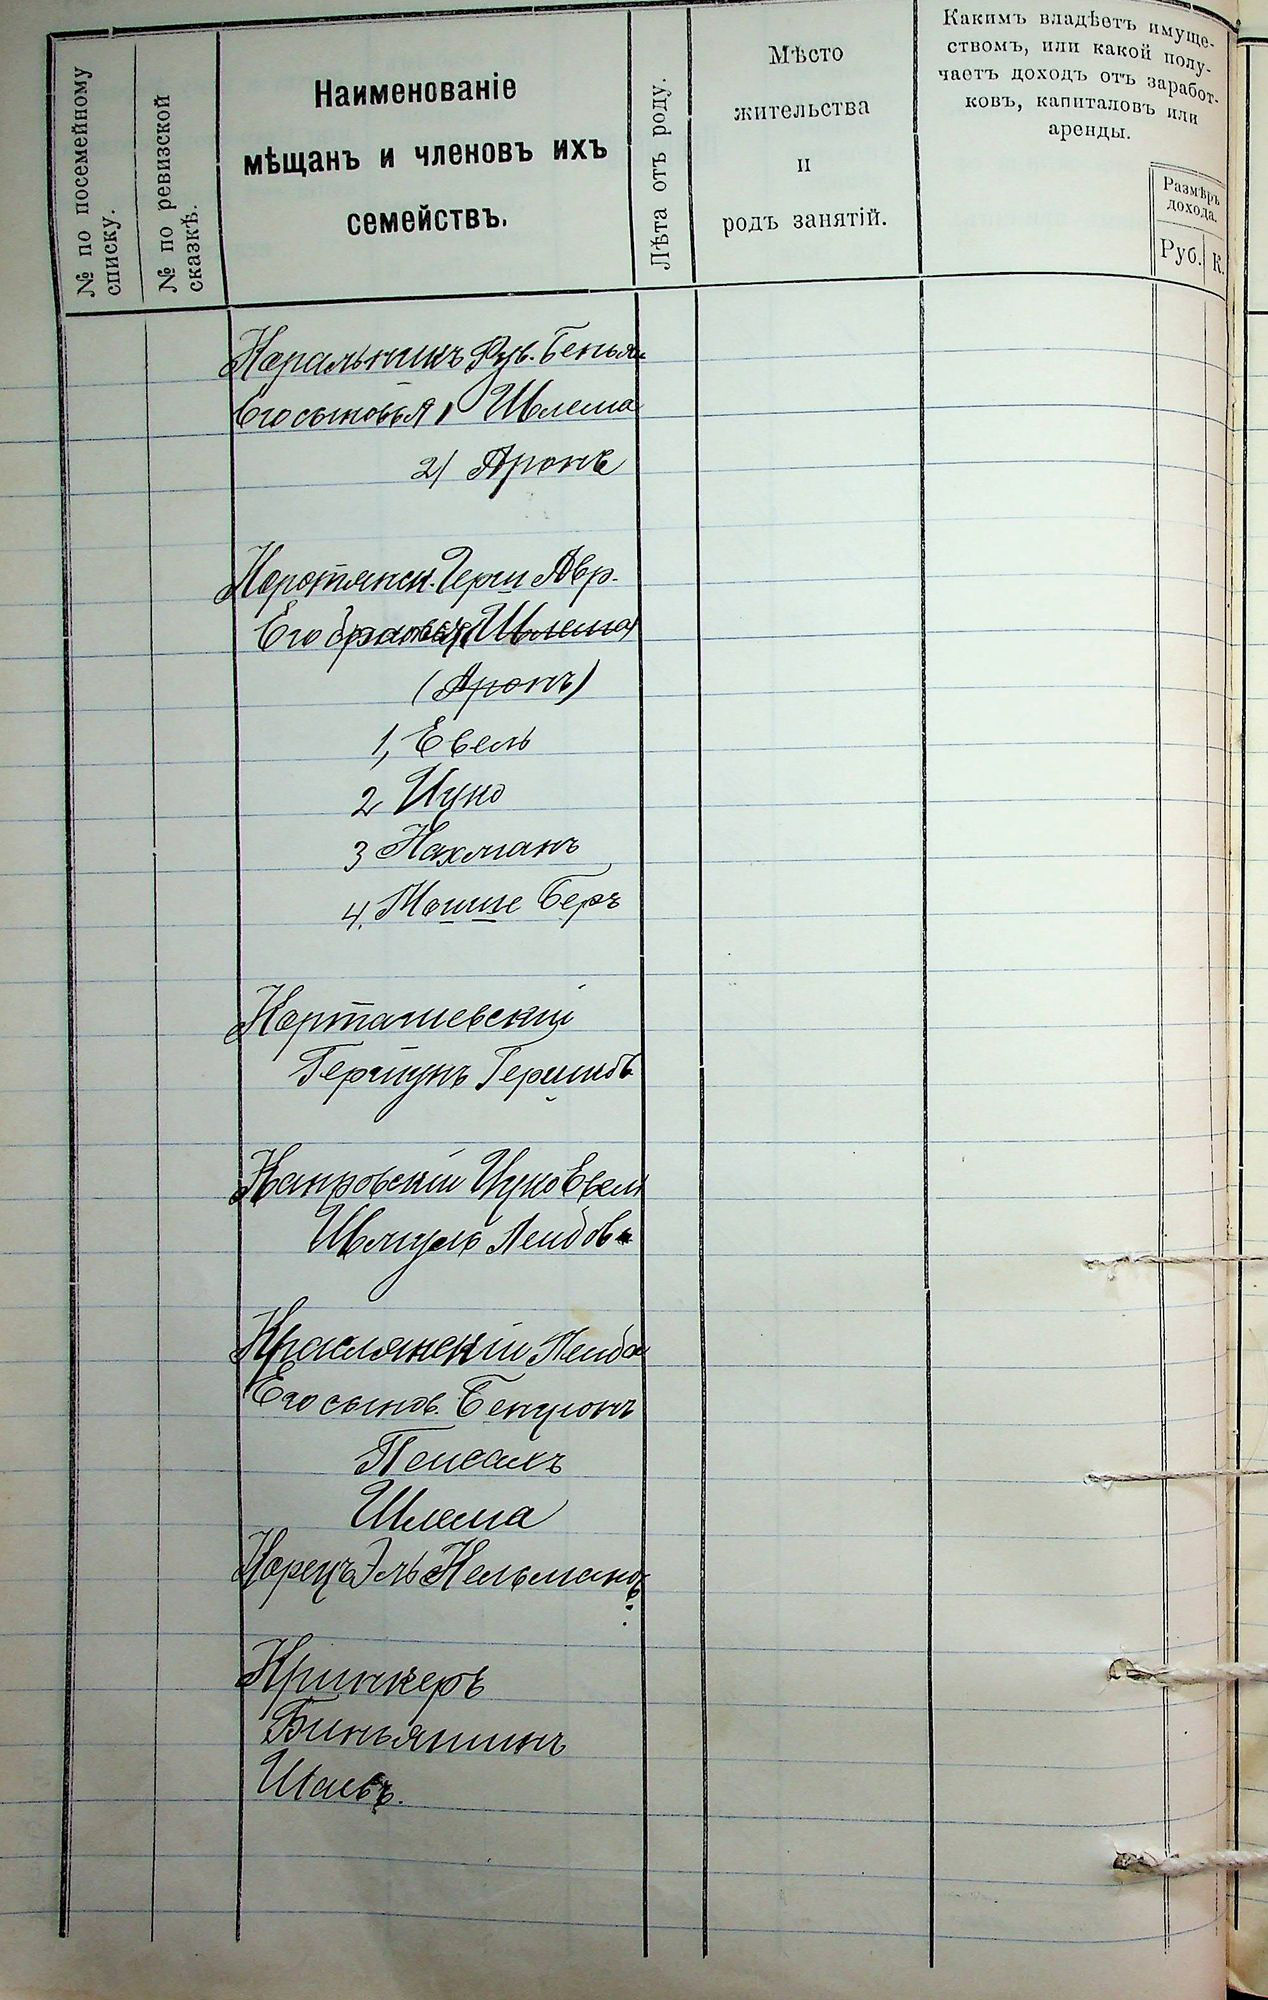 № по посемейному
списку.
№ по ревизской
сказкѣ.
Наименованіе
мѣщанъ и членовъ ихъ
семействъ.
Лѣта отъ роду.
Мѣсто
жительства
и
родъ занятій.
Какимъ владѣетъ имуще-
ствомъ, или какой полу-
чаетъ доходъ отъ заработ-
ковъ, капиталовъ или
аренды.
Размѣръ
дохода.
Руб. К.
Каральникъ Рув. Беньям
Его сыновья 1 Шлема
2) Аронъ
Коротянск. Герш Авр.
Его сыновья (Шлема)
(Аронъ)
1, Евель
2 Ицко
3 Нахманъ
4. Мошше Беръ
Карташевскій
Гершунъ Гершков
Каировскій Ицко Евели
Шмуль Лейбов
Краслянскій Лейба
Его сынов. Бенціонъ
Пейсахъ
Шлема
Корецъ Эль Кельманов
Кринкеръ
Биньяминъ